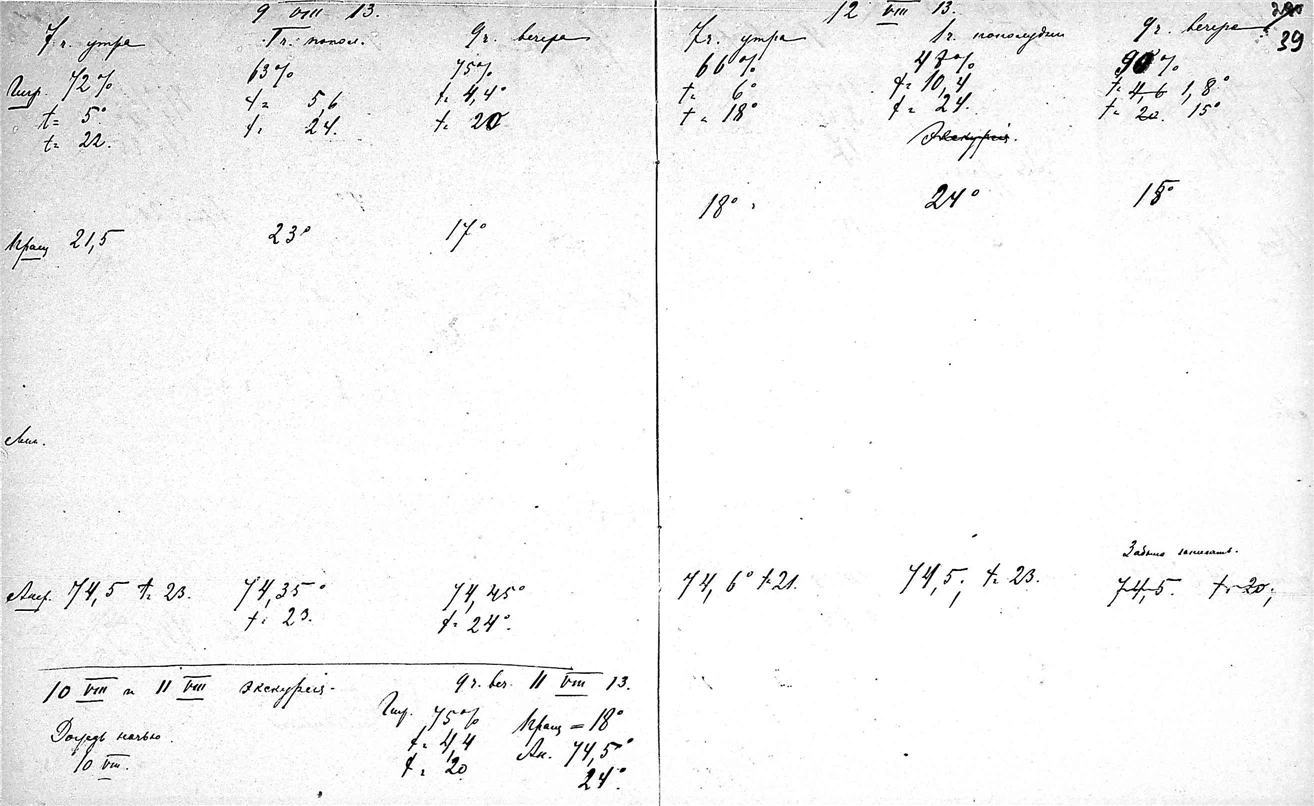 9 VIII 13.
7 ч. утра 1 ч. попол. 9 ч. вечера
Гигр. 72% 63% 75%
t= 5° t= 5,6 t= 4,4°
t= 22. t= 24. t= 20
Пращ 21,5 23° 17°
Мин.
Анер. 74,5 t= 23. 74,35° 74,45°
t= 23. t= 24°.
10 VIII и 11 VIII Экскурсія.
Дождь ночью
10 VIII.
9 ч. веч. 11 VIII 13.
Гигр. 75% Пращ = 18°
t= 4,4 Ан. 74,5°
t= 20 24°.
39
12 VIII 13.
7 ч. утра 1 ч. пополудни 9 ч. вечера
66% 47% 90%
t= 6° t= 10,4 t= 4,6 1,8°
t= 18° t= 24. t= 20. 15°
Экскурсія.
18° 24° 15°
Забыто записать.
74,6° t=21. 74,5; t= 23. 74,5. t=20;